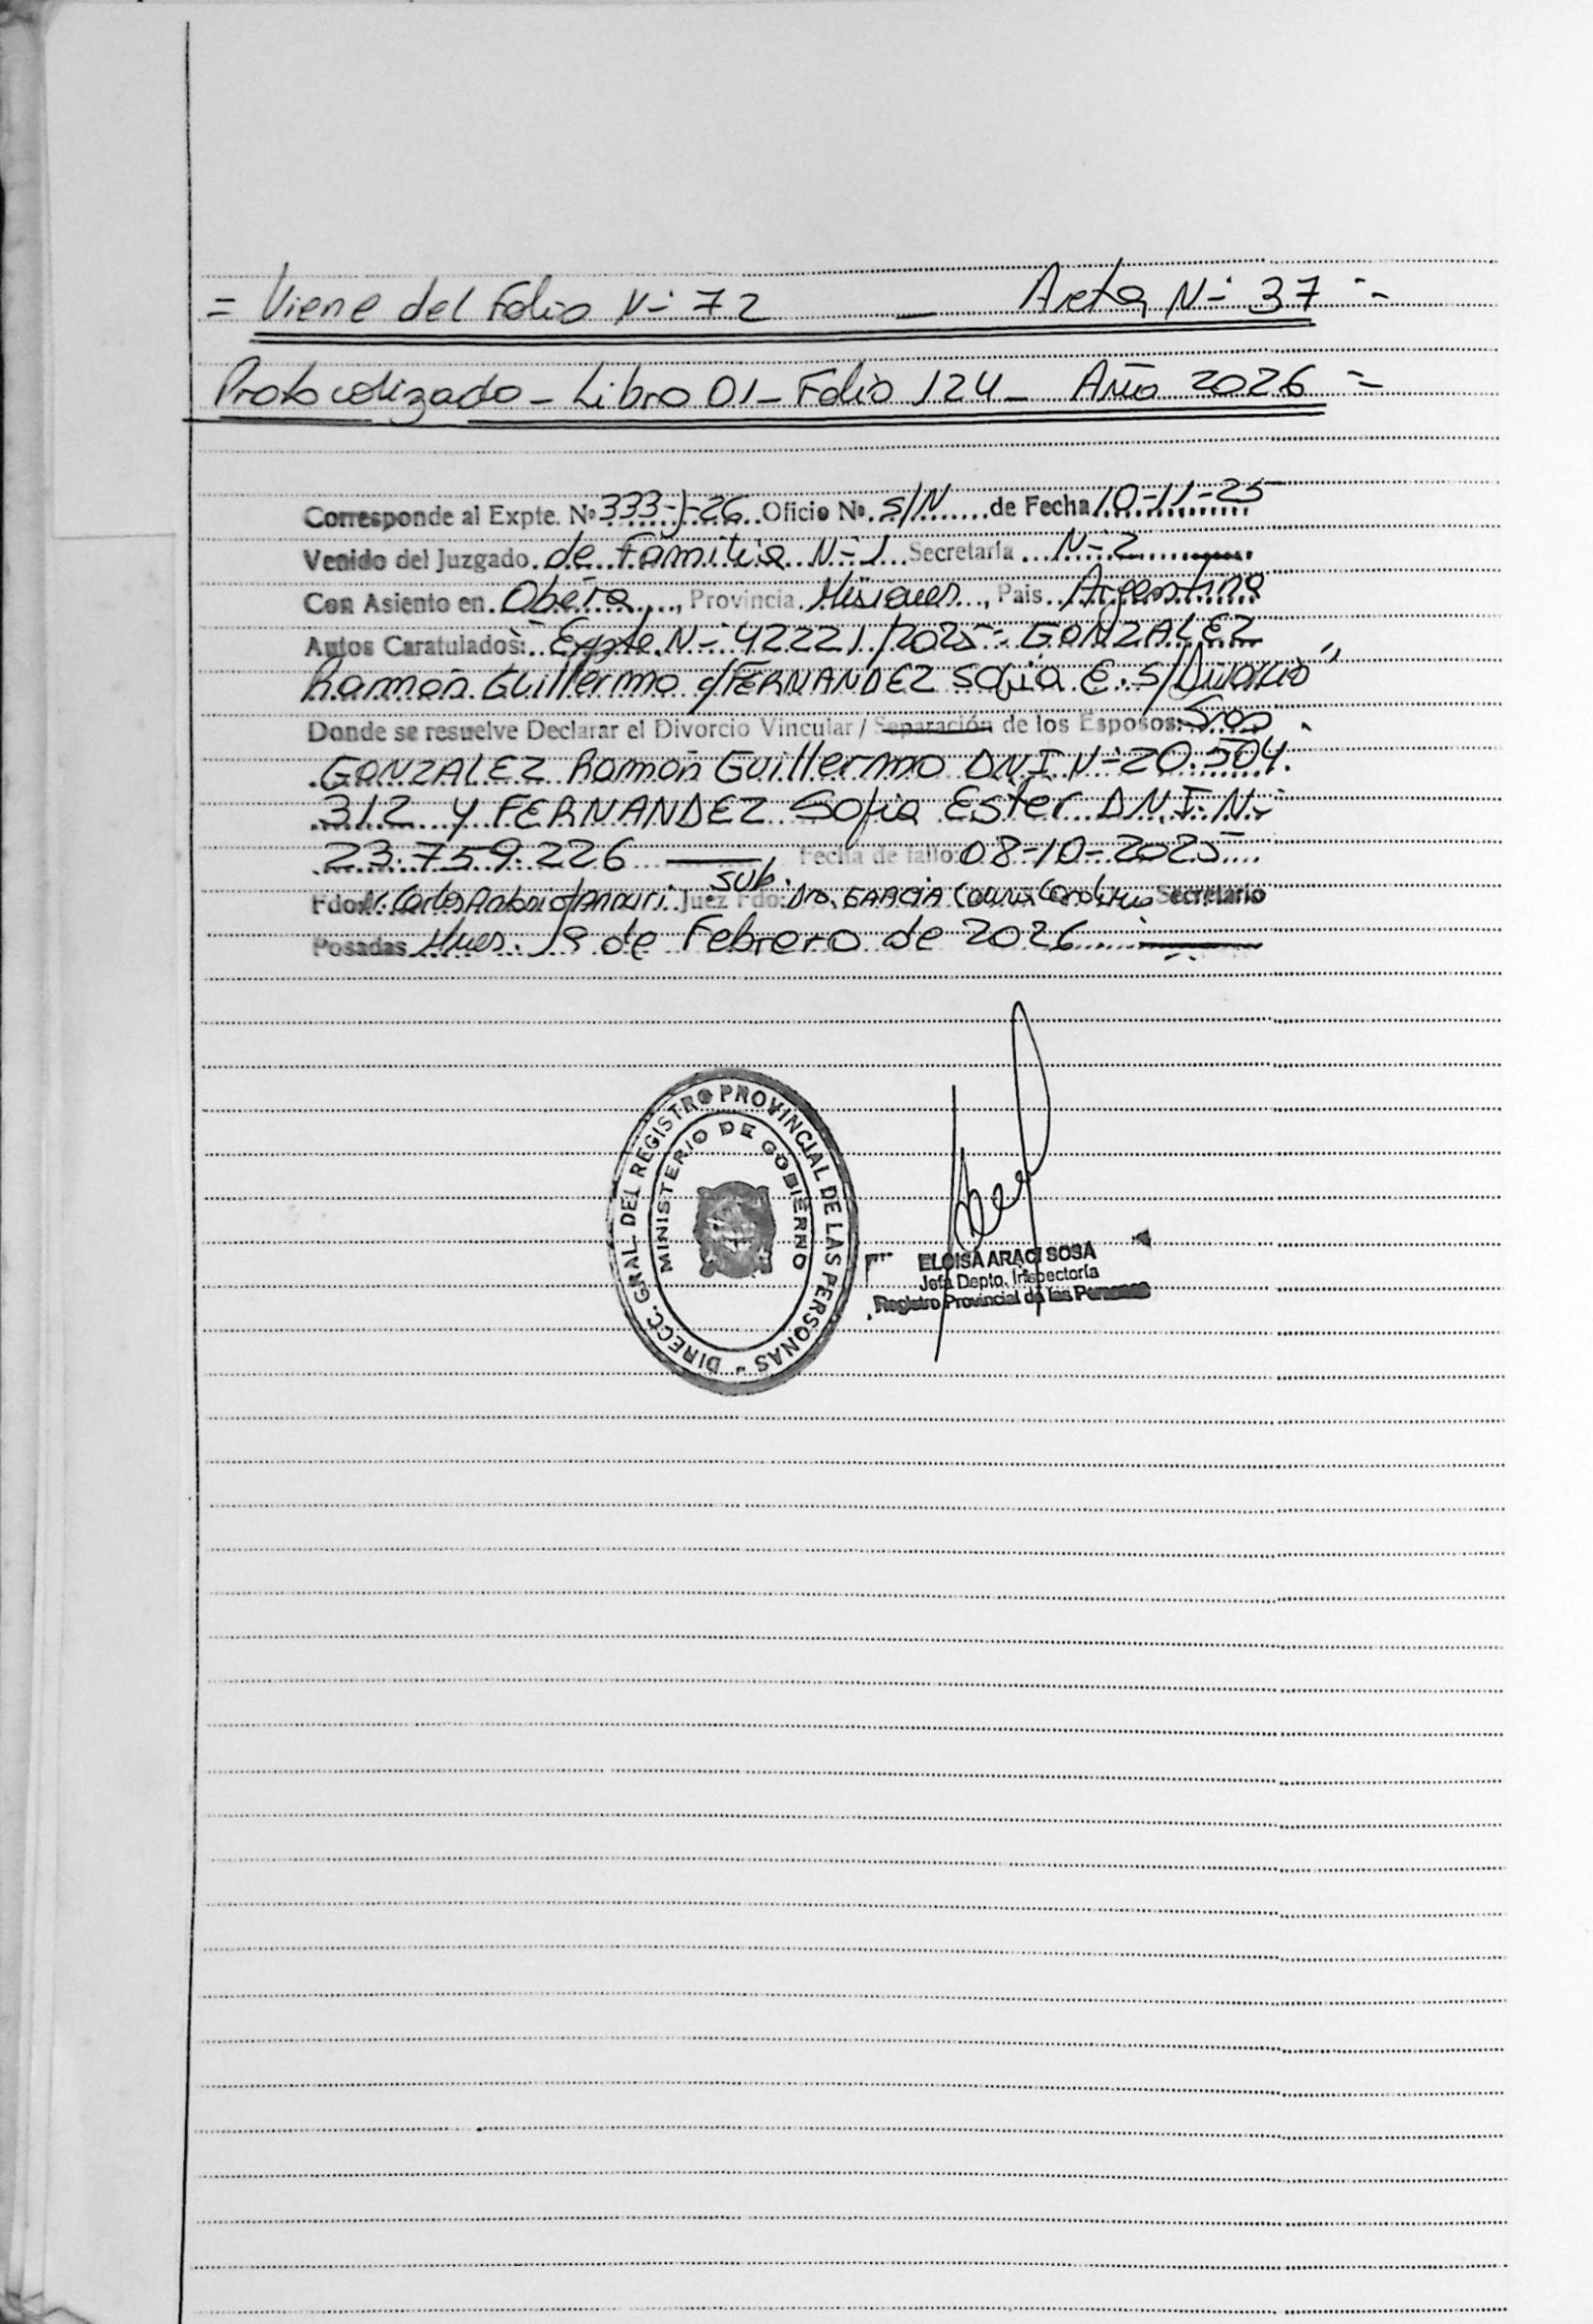 = Viene del Folio Nº 72 — Acta Nº 37 =
Protocolizado - Libro 01 - Folio 124 - Año 2026 =
Corresponde al Expte. Nº 333-J-26 Oficio Nº S/N de Fecha 10-11-25
Venido del Juzgado de Familia Nº 1 Secretaría Nº 2
Con Asiento en Oberá, Provincia Misiones, País Argentina
Autos Caratulados: Expte. Nº 42221/2025 - GONZALEZ
Ramón Guillermo c/FERNANDEZ Sofia E. s/Divorcio"
Donde se resuelve Declarar el Divorcio Vincular / Separación de los Esposos: Sres.
GONZALEZ Ramón Guillermo DNI Nº 20.504.
312 y FERNANDEZ Sofia Ester D.N.I. Nº
23.759.226 Fecha de fallo: 08-10-2025
Fdo: Dr. Carlos Antonio Juez Sub. Fdo: Dra. GARCIA Secretario
Posadas Mnes. 19 de Febrero de 2026
DIRECC. GRAL. DEL REGISTRO PROVINCIAL DE LAS PERSONAS -
MINISTERIO DE GOBIERNO
ELOISA ARACI SOSA
Jefa Depto. Inspectoría
Registro Provincial de las Personas